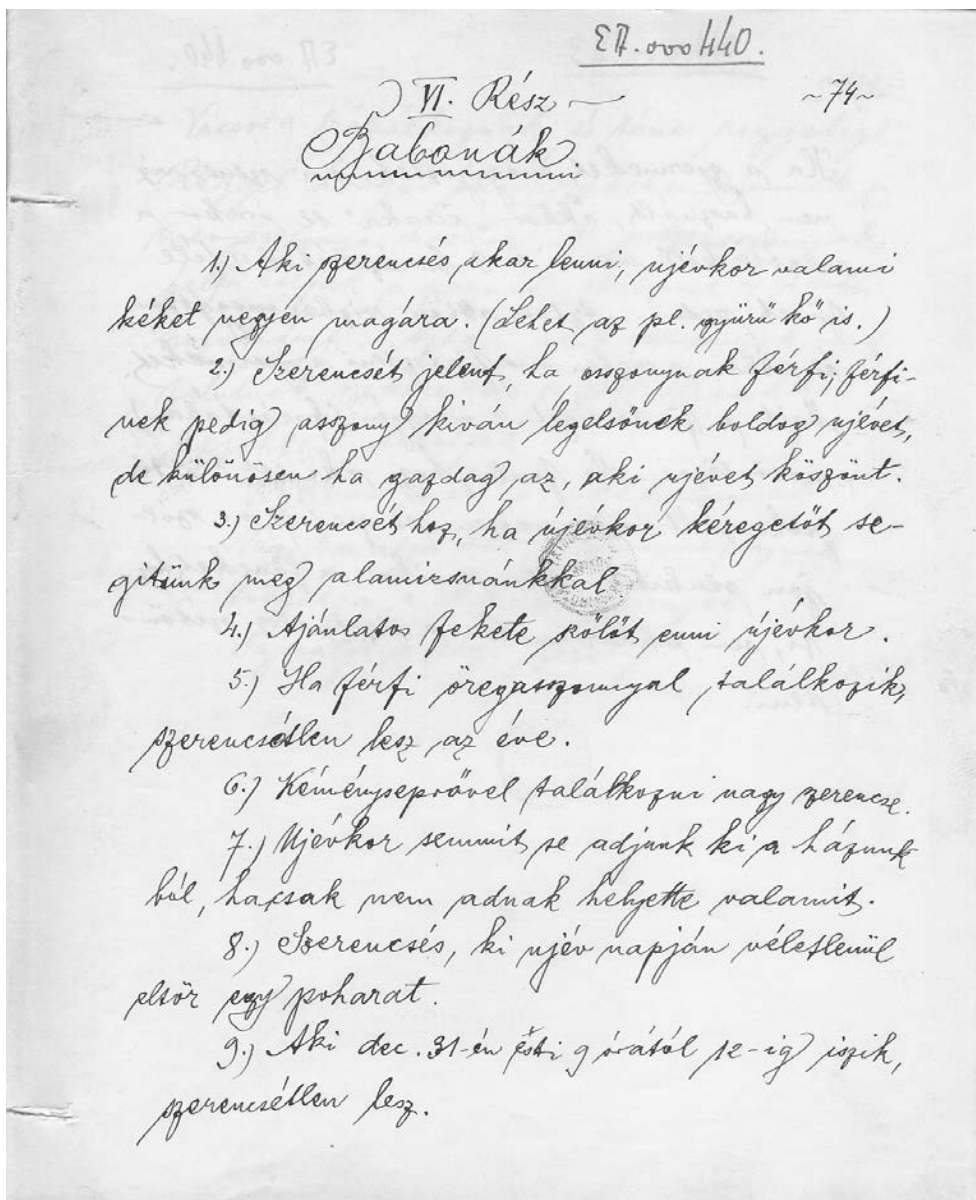 EA.000440.
VI. Rész
~74~
Babonák.
1.) Aki szerencsés akar lenni, ujévkor valami
kéket vegyen magára. (Lehet az pl. gyürü kő is.)
2.) Szerencsét jelent, ha asszonynak férfi; férfi-
nek pedig asszony kiván legelsőnek boldog ujévet,
de különösen ha gazdag az, aki ujévet köszönt.
3.) Szerencsét hoz, ha újévkor kéregetőt se-
gitünk meg alamizsnánkkal
4.) Ajánlatos fekete szőlőt enni újévkor.
5.) Ha férfi öregasszonnyal találkozik,
szerencsétlen lesz az éve.
6.) Kéményseprővel találkozni nagy szerencse.
7.) Ujévkor semmit se adjunk ki a házunk-
ból, hacsak nem adnak helyette valamit.
8.) Szerencsés, ki ujév napján véletlenül
eltör egy poharat.
9.) Aki dec. 31-én esti 9 órától 12-ig iszik,
szerencsétlen lesz.